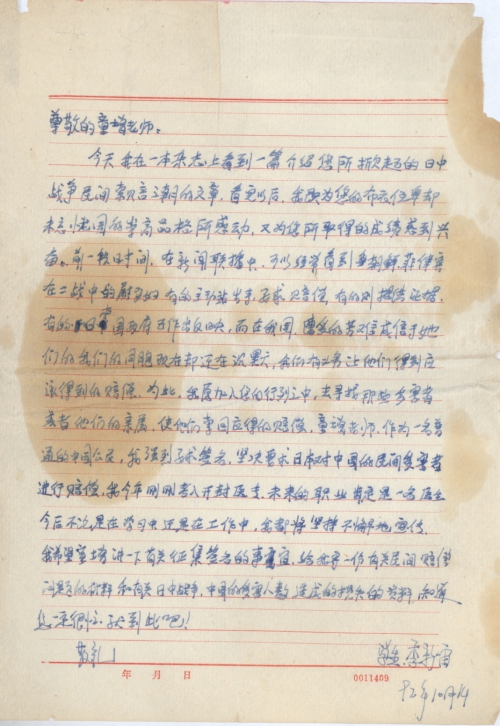 尊敬的童增老师:
今天我在一本杂志上看到一篇介绍您所掀起的日中
战争民间索赔浪潮的文章,看完以后,我颇为您的布衣位卑却
未忘国的崇高品格所感动,又为您所取得的成绩感到兴
奋。前一段时间,在新闻联播中,可以经常看到朝鲜菲律宾
在二战中的慰安妇有的主动站出来要求赔偿,有的则搜集证据,
有的日本国政府作出反映,而在我国遭受的苦难甚倍于她
们的我们的同胞现在却还在沉默,我们有义务让他们得到应
该得到的赔偿。为此,我愿加入您的行列之中,去寻找那些受害者
或者他们的亲属,使他们拿回应得的赔偿,童增老师,作为一名普
通的中国公民,我强烈要求签名,坚决要求日本对中国的民间受害者
进行赔偿,我今年刚刚考入开封医专,未来的职业肯定是一名医生
今后不论是在学习中还是在工作中,我都将坚持不懈地宣传,
我希望童增讲一下有关征集签名的事宜,给我寄一份有关民间赔偿
问题的材料和有关日中战争,中国的伤亡人数造成的损失的资料,
到此吧!
敬礼
学生:李新
年 月 日
0011409
10月14